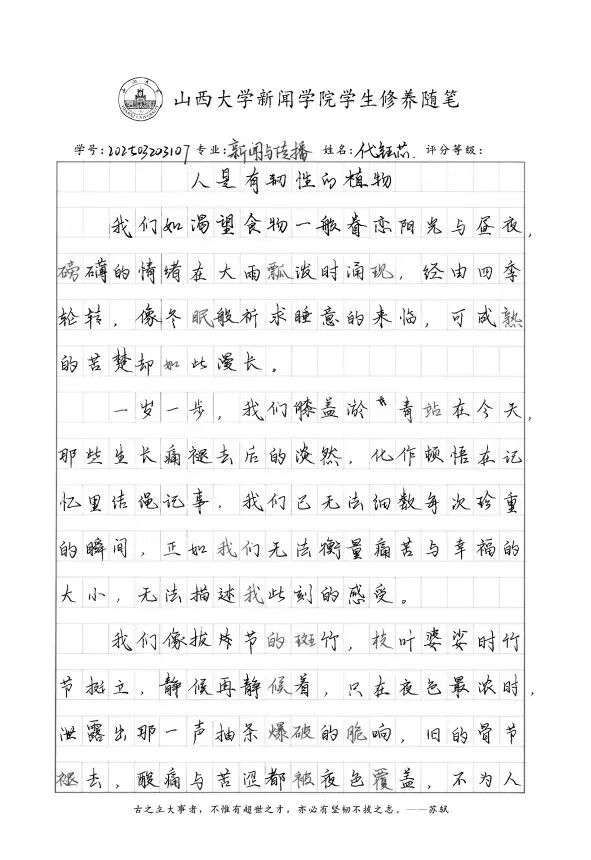 山西大学新闻学院学生修养随笔
学号:202503203107 专业:新闻与传播 姓名:代钰芯. 评分等级:
人是有韧性的植物
我们如渴望食物一般眷恋阳光与昼夜,
磅礴的情绪在大雨瓢泼时涌现,经由四季
轮转,像冬眠般祈求睡意的来临,可成熟
的苦楚却如此漫长。
一岁一步,我们膝盖淤青站在今天,
那些生长痛褪去后的淡然,化作顿悟在记
忆里结绳记事,我们已无法细数每次珍重
的瞬间,正如我们无法衡量痛苦与幸福的
大小,无法描述我此刻的感受。
我们像拔节的斑竹,枝叶婆娑时竹
节挺立,静候再静候着,只在夜色最浓时,
泄露出那一声抽条爆破的脆响,旧的骨节
褪去,酸痛与苦涩都被夜色覆盖,不为人
古之立大事者,不惟有超世之才,亦必有坚韧不拔之志。——苏轼